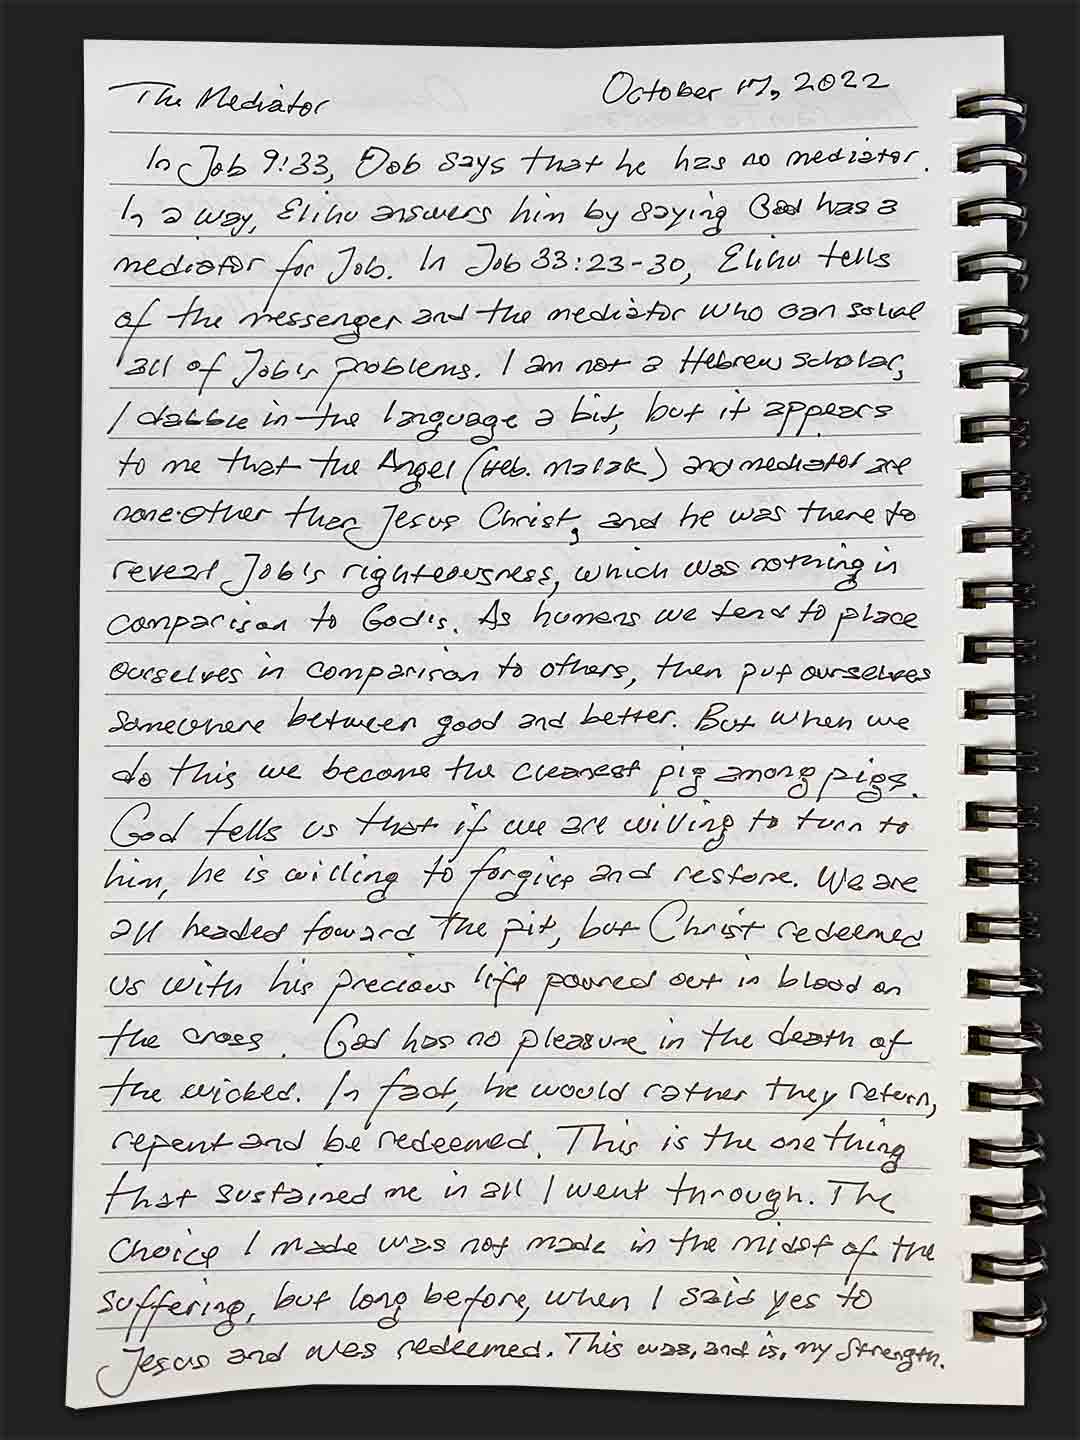 The Mediator
October 17, 2022
In Job 9:33, Job says that he has no mediator.
In a way, Elihu answers him by saying God has a
mediator for Job. In Job 33:23-30, Elihu tells
of the messenger and the mediator who can solve
all of Job's problems. I am not a Hebrew scholar,
I dabble in the language a bit, but it appears
to me that the Angel (Heb. malak) and mediator are
none other than Jesus Christ, and he was there to
reveal Job's righteousness, which was nothing in
comparison to God's. As humans we tend to place
ourselves in comparison to others, then put ourselves
somewhere between good and better. But when we
do this we become the cleanest pig among pigs.
God tells us that if we are willing to turn to
him, he is willing to forgive and restore. We are
all headed toward the pit, but Christ redeemed
us with his precious life poured out in blood on
the cross. God has no pleasure in the death of
the wicked. In fact, he would rather they return,
repent and be redeemed. This is the one thing
that sustained me in all I went through. The
choice I made was not made in the midst of the
suffering, but long before, when I said yes to
Jesus and was redeemed. This was, and is, my strength.